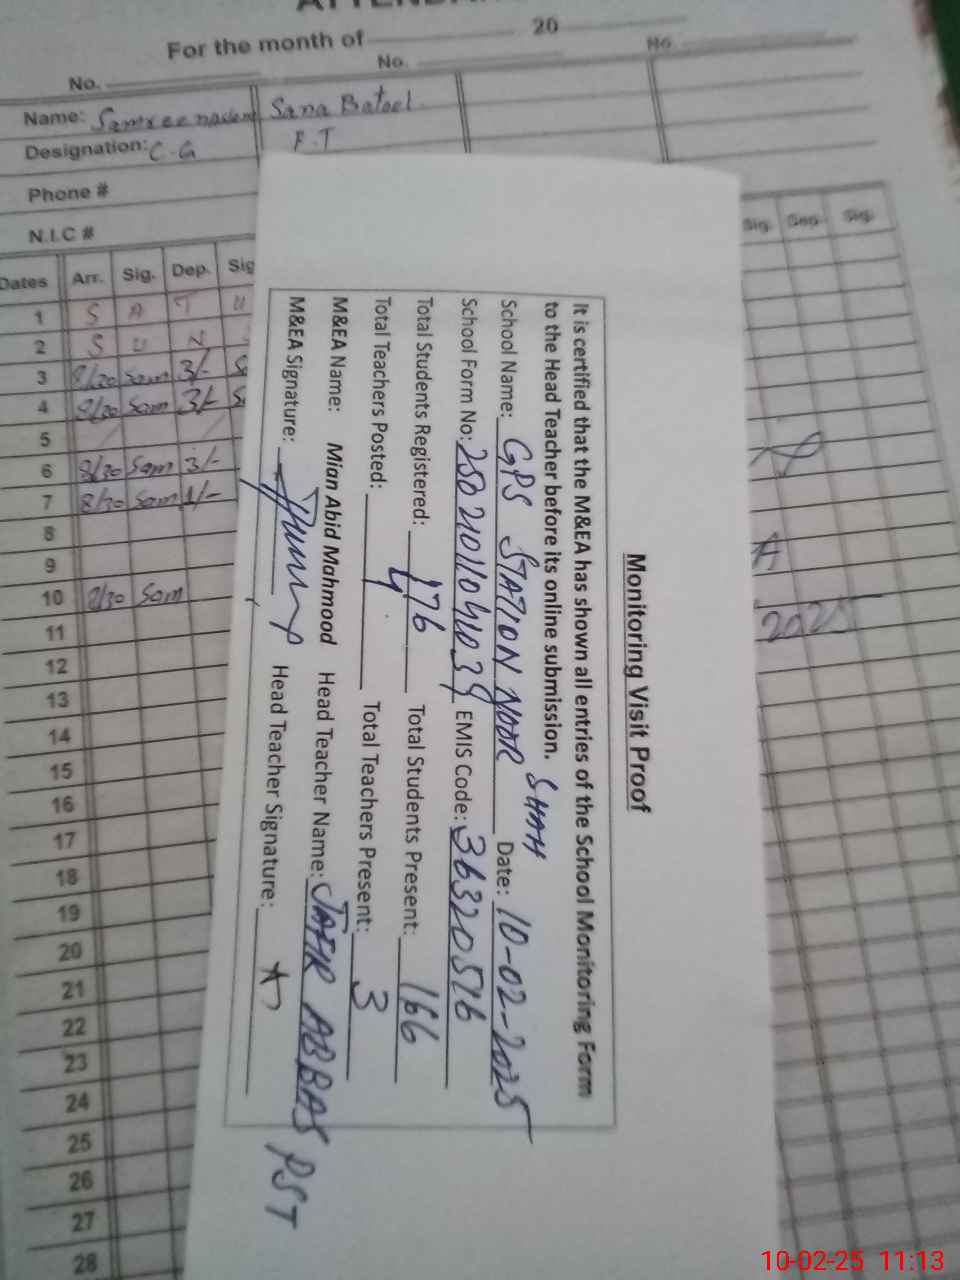 For the month of 20
No. No. No.
Name: Samreen Sana Batool
Designation: C.G F.T
Phone #
N.I.C #
Dates Arr. Sig. Dep. Sig Sig. Dep. Sig.
1 S A T U
2 S U N
3 8/30 Sam 3/- S
4 8/30 Sam 3/- S
5
6 8/30 Sam 3/-
7 8/30 Sam 1/-
8
9
10 8/30 Sam 2025
11
12
13
14
15
16
17
18
19
20
21
22
23
24
25
26
27
28
Monitoring Visit Proof
It is certified that the M&EA has shown all entries of the School Monitoring Form
to the Head Teacher before its online submission.
School Name: GPS STATION NOOR SHAH Date: 10-02-2025
School Form No: 25021011041039 EMIS Code: 36320516
Total Students Registered: 176 Total Students Present: 166
Total Teachers Posted: 4 Total Teachers Present: 3
M&EA Name: Mian Abid Mahmood Head Teacher Name: JAFIR ABBAS PST
M&EA Signature: Head Teacher Signature:
10-02-25 11:13